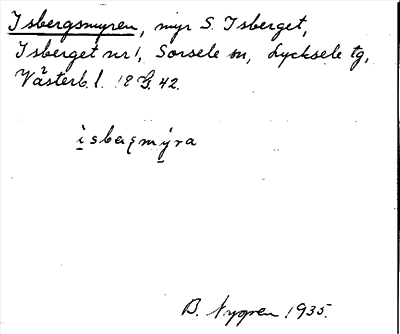 Isbergsmyren, myr S. Isberget,
Isberget nr 1, Sorsele sn, Lycksele tg,
Västerb. l. 18 G. 42.
isbeꞬmýra
B. Nygren 1935.